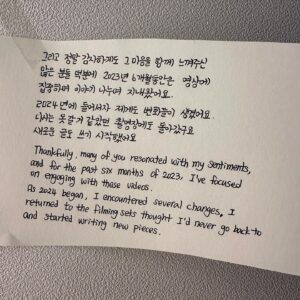 그리고 정말 감사하게도 그 마음을 함께 느껴주신
많은 분들 덕분에 2023년 6개월동안은 영상에
집중하며 이야기 나누며 지내왔어요.
2024년에 들어서자 제게도 변화들이 생겼어요.
다시는 못 갈 거 같았던 촬영장에도 돌아갔구요
새로운 글도 쓰기 시작했어요
Thankfully, many of you resonated with my sentiments,
and for the past six months of 2023, I've focused
on engaging with these videos.
As 2024 began, I encountered several changes. I
returned to the filming sets thought I'd never go back to
and started writing new pieces.